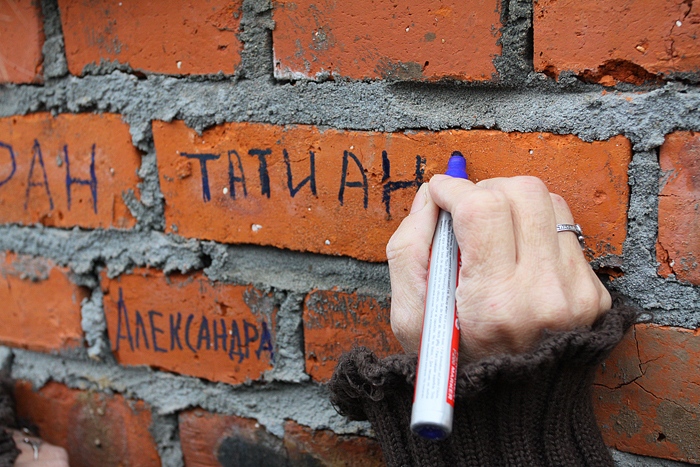 РАН ТАТИАН
АЛЕКСАНДРА